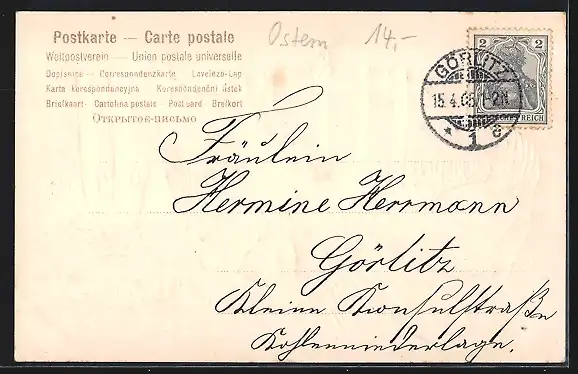 Postkarte — Carte postale
Weltpostverein — Union postale universelle
Dopisnice — Correspondenzkarte Levelezo-Lap
Karta korespondencyjna Korespondenční lístek
Briefkaart - Cartolina postale - Post card Brefkort
ОТКРЫТОЕ-ПИСЬМО
Ostern 14,-
2 2
REICH
GÖRLITZ
15.4.05 1-2N
* 1 c
Fräulein
Hermine Herrmann
Görlitz
Kleine Konsulstraße
Kohlenniederlage.